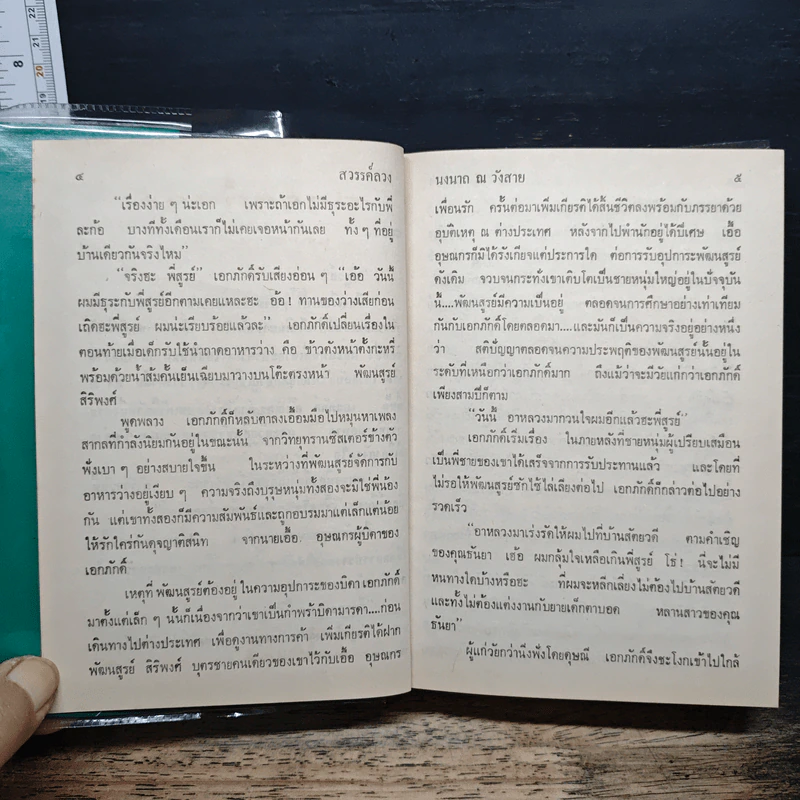 ๔ สวรรค์ลวง
“เรื่องง่าย ๆ น่ะเอก เพราะถ้าเอกไม่มีธุระอะไรกับพี่
ละก้อ บางทีทั้งเดือนเราก็ไม่เคยเจอหน้ากันเลย ทั้ง ๆ ที่อยู่
บ้านเดียวกันจริงไหม”
“จริงฮะ พี่สูรย์” เอกภักดิ์รับเสียงอ่อน ๆ “เอ้อ วันนี้
ผมมีธุระกับพี่สูรย์อีกตามเคยแหละฮะ อ้อ! ทานของว่างเสียก่อน
เถิดฮะพี่สูรย์ ผมน่ะเรียบร้อยแล้วละ” เอกภักดิ์เปลี่ยนเรื่องใน
ตอนท้ายเมื่อเด็กรับใช้นำถาดอาหารว่าง คือ ข้าวตังหน้าตั้งกะหรี่
พร้อมด้วยน้ำส้มคั้นเย็นเฉียบมาวางบนโต๊ะตรงหน้า พัฒนสูรย์
สิริพงศ์
พูดพลาง เอกภักดิ์ก็หลับตาลงเอื้อมมือไปหมุนหาเพลง
สากลที่กำลังนิยมกันอยู่ในขณะนั้น จากวิทยุทรานซิสเตอร์ข้างตัว
ฟังเบา ๆ อย่างสบายใจขึ้น ในระหว่างที่พัฒนสูรย์จัดการกับ
อาหารว่างอยู่เงียบ ๆ ความจริงถึงบุรุษหนุ่มทั้งสองจะมิใช่พี่น้อง
กัน แต่เขาทั้งสองก็มีความสัมพันธ์และถูกอบรมมาแต่เล็กแต่น้อย
ให้รักใคร่กันดุจญาติสนิท จากนายเอื้อ อุษณกรผู้บิดาของ
เอกภักดิ์
เหตุที่ พัฒนสูรย์ต้องอยู่ ในความอุปการะของบิดา เอกภักดิ์
มาตั้งแต่เล็ก ๆ นั้นก็เนื่องจากว่าเขาเป็นกำพร้าบิดามารดา....ก่อน
เดินทางไปต่างประเทศ เพื่อดูงานทางการค้า เพิ่มเกียรติได้ฝาก
พัฒนสูรย์ สิริพงศ์ บุตรชายคนเดียวของเขาไว้กับเอื้อ อุษณกร
นงนาถ ณ วังสาย ๕
เพื่อนรัก ครั้นต่อมาเพิ่มเกียรติได้สิ้นชีวิตลงพร้อมกับภรรยาด้วย
อุบัติเหตุ ณ ต่างประเทศ หลังจากไปพำนักอยู่ได้ปีเศษ เอื้อ
อุษณกรก็มิได้รังเกียจแต่ประการใด ต่อการรับอุปการะพัฒนสูรย์
ดังเดิม จวบจนกระทั่งเขาเติบโตเป็นชายหนุ่มใหญ่อยู่ในปัจจุบัน
นี้....พัฒนสูรย์มีความเป็นอยู่ ตลอดจนการศึกษาอย่างเท่าเทียม
กันกับเอกภักดิ์โดยตลอดมา....และมันก็เป็นความจริงอยู่อย่างหนึ่ง
ว่า สติปัญญาตลอดจนความประพฤติของพัฒนสูรย์นั้นอยู่ใน
ระดับที่เหนือกว่าเอกภักดิ์มาก ถึงแม้ว่าจะมีวัยแก่กว่าเอกภักดิ์
เพียงสามปีก็ตาม
“วันนี้ อาหลวงมากวนใจผมอีกแล้วฮะพี่สูรย์”
เอกภักดิ์เริ่มเรื่อง ในภายหลังที่ชายหนุ่มผู้เปรียบเสมือน
เป็นพี่ชายของเขาได้เสร็จจากการรับประทานแล้ว และโดยที่
ไม่รอให้พัฒนสูรย์ซักไซ้ไล่เลียงต่อไป เอกภักดิ์ก็กล่าวต่อไปอย่าง
รวดเร็ว
“อาหลวงมาเร่งรัดให้ผมไปที่บ้านสัตยวดี ตามคำเชิญ
ของคุณธันยา เฮ้อ ผมกลุ้มใจเหลือเกินพี่สูรย์ โธ่! นี่จะไม่มี
หนทางใดบ้างหรือฮะ ที่ผมจะหลีกเลี่ยงไม่ต้องไปบ้านสัตยวดี
และทั้งไม่ต้องแต่งงานกับยายเด็กตาบอด หลานสาวของคุณ
ธันยา”
ผู้แก่วัยกว่านิ่งฟังโดยดุษณี เอกภักดิ์จึงชะโงกเข้าไปใกล้
8
22
21
20
19